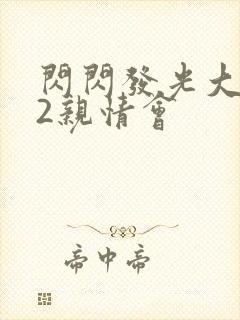 閃閃發光大
2親情會
帝中帝